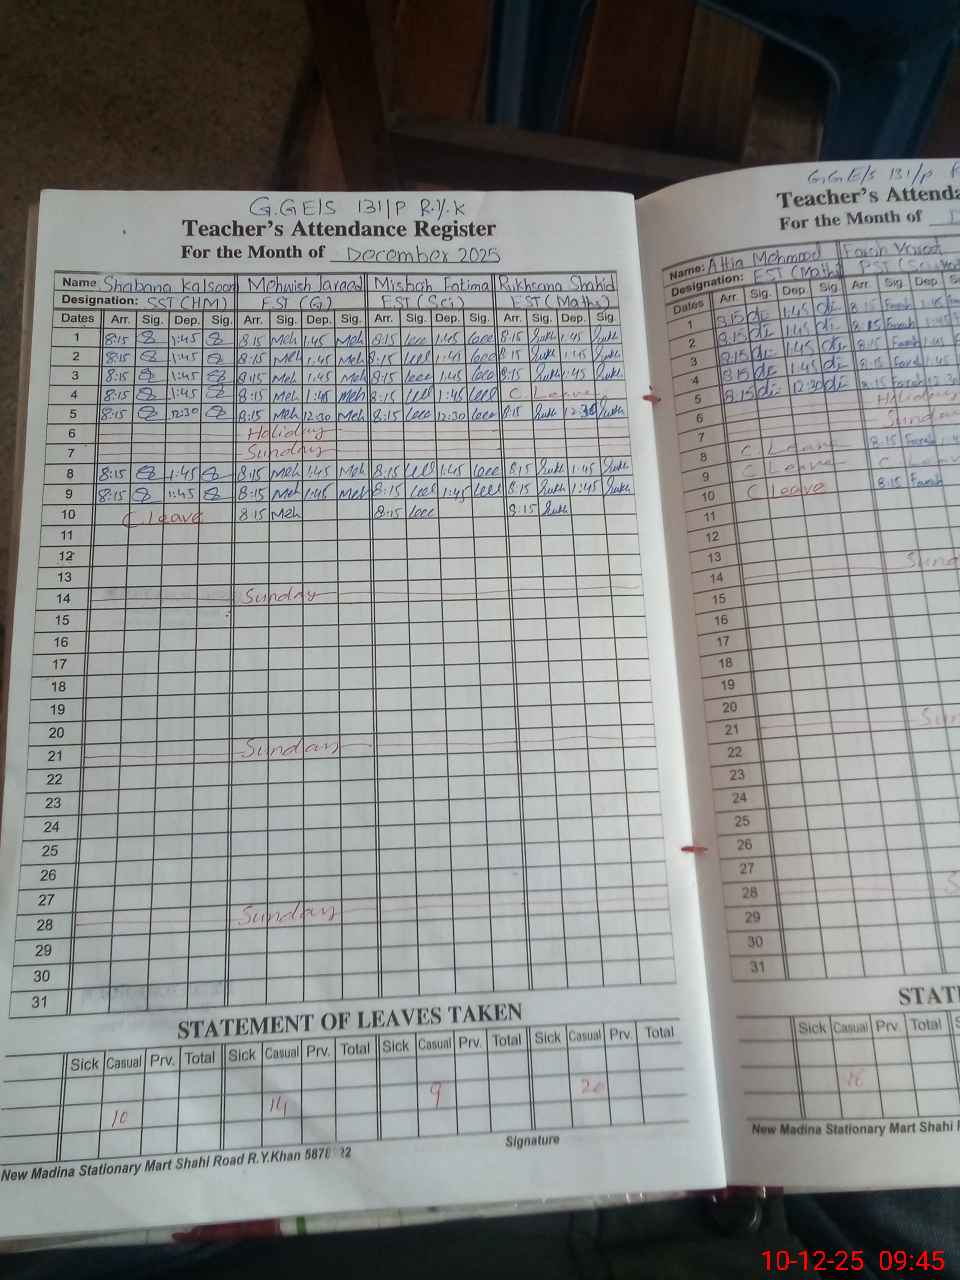 G.GE/S 131/P R.Y.K
Teacher's Attendance Register
For the Month of December 2025
Name Shabana Kalsoom Mehwish Jaraad Misbah Fatima Rukhsana Shahid
Designation: SST (HM) EST (G) EST (Sci) EST (Maths)
Dates Arr. Sig. Dep. Sig. Arr. Sig. Dep. Sig. Arr. Sig. Dep. Sig. Arr. Sig. Dep. Sig.
1 8:15 1:45 8:15 Meh 1:45 Meh 8:15 1:45 8:15 1:45
2 8:15 1:45 8:15 Meh 1:45 Meh 8:15 1:45 8:15 1:45
3 8:15 1:45 8:15 Meh 1:45 Meh 8:15 1:45 8:15 1:45
4 8:15 1:45 8:15 Meh 1:45 Meh 8:15 1:45 C. Leave
5 8:15 12:30 8:15 Meh 12:30 Meh 8:15 12:30 8:15 12:30
6 Holiday
7 Sunday
8 8:15 1:45 8:15 Meh 1:45 Meh 8:15 1:45 8:15 1:45
9 8:15 1:45 8:15 Meh 1:45 Meh 8:15 1:45 8:15 1:45
10 C. leave 8:15 Meh 8:15 8:15
11
12
13
14 Sunday
15
16
17
18
19
20
21 Sunday
22
23
24
25
26
27
28 Sunday
29
30
31
STATEMENT OF LEAVES TAKEN
Sick Casual Prv. Total Sick Casual Prv. Total Sick Casual Prv. Total Sick Casual Prv. Total
10 14 9 20
Signature
New Madina Stationary Mart Shahi Road R.Y.Khan
G.G.E/S 131/P
Teacher's Attenda
For the Month of
Name: Attia Mehmood Farah
Designation: EST (Maths)
Dates Arr. Sig. Dep. Sig. Arr. Sig. Dep.
1 8:15 1:45 8:15 Farah 1:45
2 8:15 1:45 8:15 Farah
3 8:15 1:45 8:15 Farah 1:45
4 8:15 1:45 8:15 Farah 1:45
5 8:15 12:30 8:15 Farah 12:3
6 Holiday
7 Sunday
8 C Leave 8:15 Farah
9 C Leave C Leav
10 C leave 8:15 Farah
11
12
13
14 Sund
15
16
17
18
19
20
21 Sun
22
23
24
25
26
27
28 S
29
30
31
STATE
Sick Casual Prv. Total
New Madina Stationary Mart Shahi
10-12-25 09:45